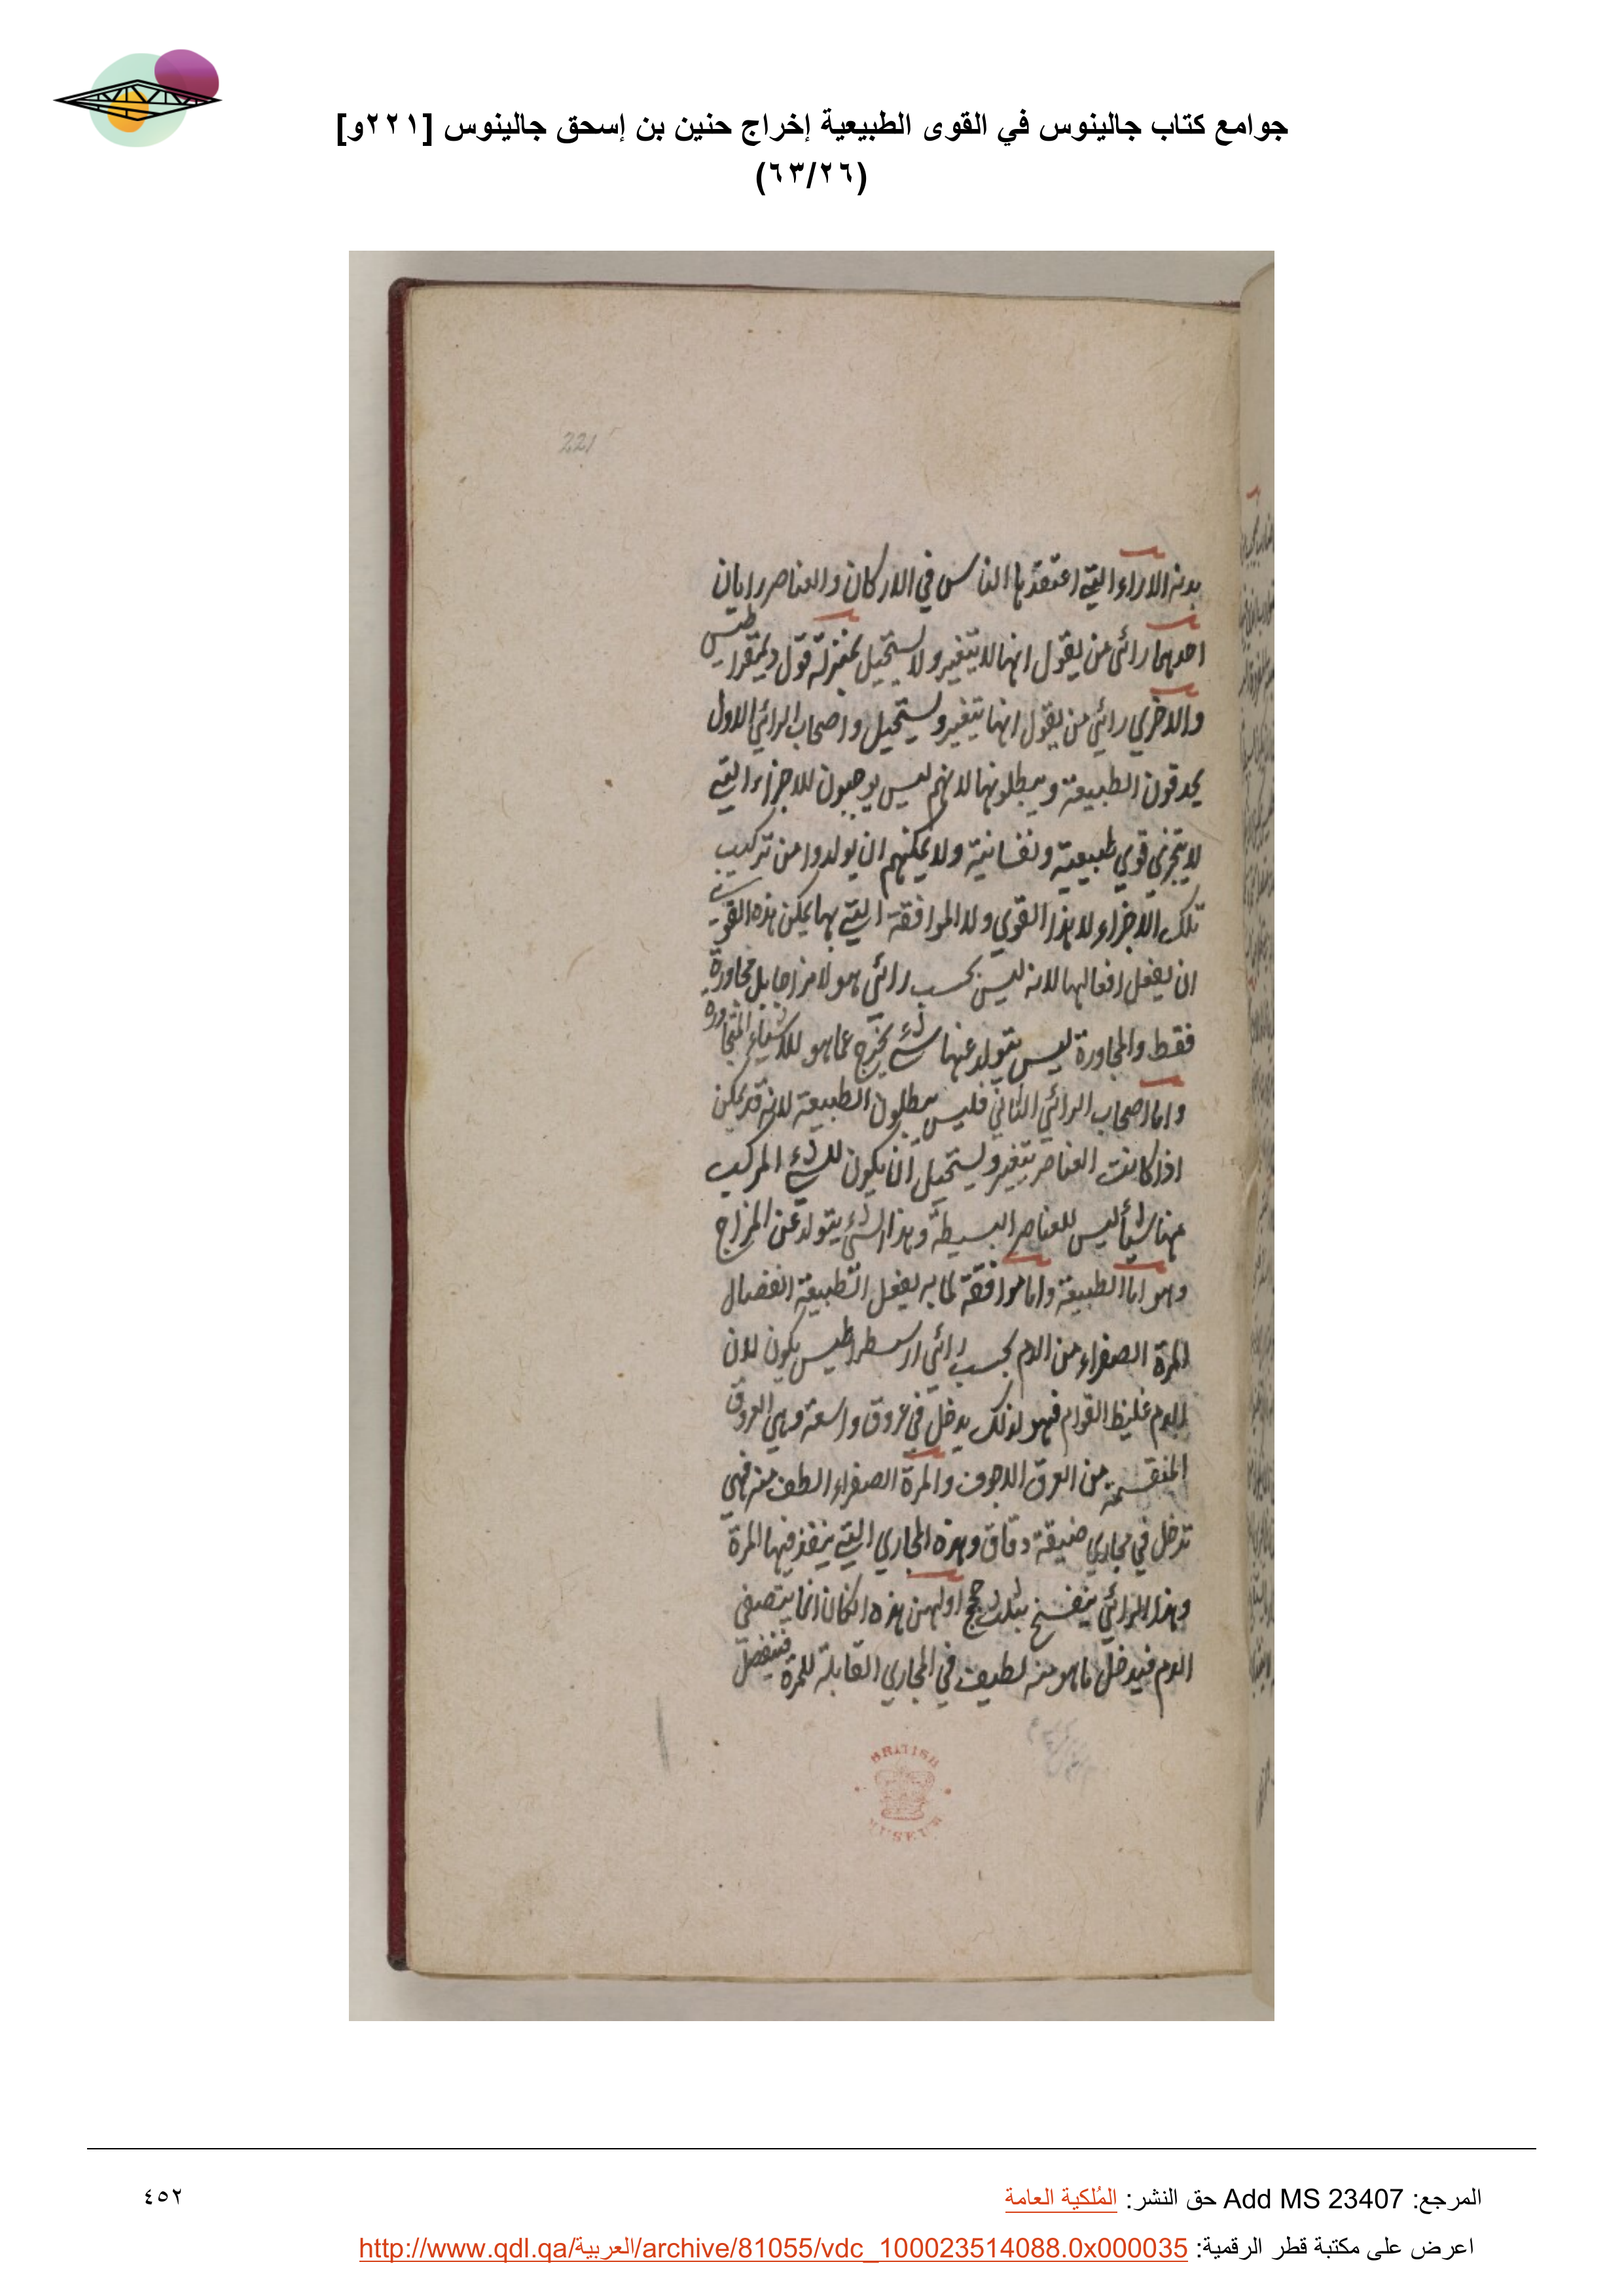 جوامع كتاب جالينوس في القوى الطبيعية إخراج حنين بن إسحق جالينوس [٢٢١و]
(٦٣/٢٦)
221
هذه الاراء التي اعتقدها الناس في الاركان والعناصر رايان
احدهما رائي من يقول انها لا يتغير ولا يستحيل بمنزلة قول ديمقراطيس
والاخري رائي من يقول انها يتغير ويستحيل واصحاب الرائي الاول
الطبيعة ويبطلونها لانهم ليس يوجبون للاجزاء التي
لا يتجزي قوي طبيعية ونفسانية ولا يمكنهم ان يولدوا من تركيب
تلك الاجزاء لا هذا القوي ولا الموافقة التي بها يمكن هذه القوي
ان يفعل افعالها لانه ليس بحسب رائي هولا مزاجا بل مجاورة
فقط والمجاورة ليس يتولد عنها شيء يخرج عما هو للاشياء المتجاورة
واما اصحاب الرائي الثاني فليس يبطلون الطبيعة لانه قد يمكن
اذا كانت العناصر يتغير ويستحيل ان يكون للشيء المركب
منها شيأ ليس للعناصر البسيطة وهذا الشيء يتولد عن المزاج
وهو اما الطبيعة واما موافقة لما به يفعل الطبيعة انفصال
المرة الصفراء من الدم بحسب رائي ارسطراطيس يكون لان
الدم غليظ القوام فهو لذلك يدخل في عروق واسعة وهي العروق
المنقسمة من العرق الاجوف والمرة الصفراء الطف منه فهي
تدخل في مجاري ضيقة دقاق وهذه المجاري التي ينفذ فيها المرة
وهذا الرائي ينفسخ بثلث حجج اولهن هذه انكان انما يتصفي
الدم فيدخل ما هو منه لطيف في المجاري القابلة للمرة فينفصل
BRITISH MUSEUM
المرجع: Add MS 23407 حق النشر: المُلكية العامة
٤٥٢
اعرض على مكتبة قطر الرقمية: http://www.qdl.qa/العربية/archive/81055/vdc_100023514088.0x000035